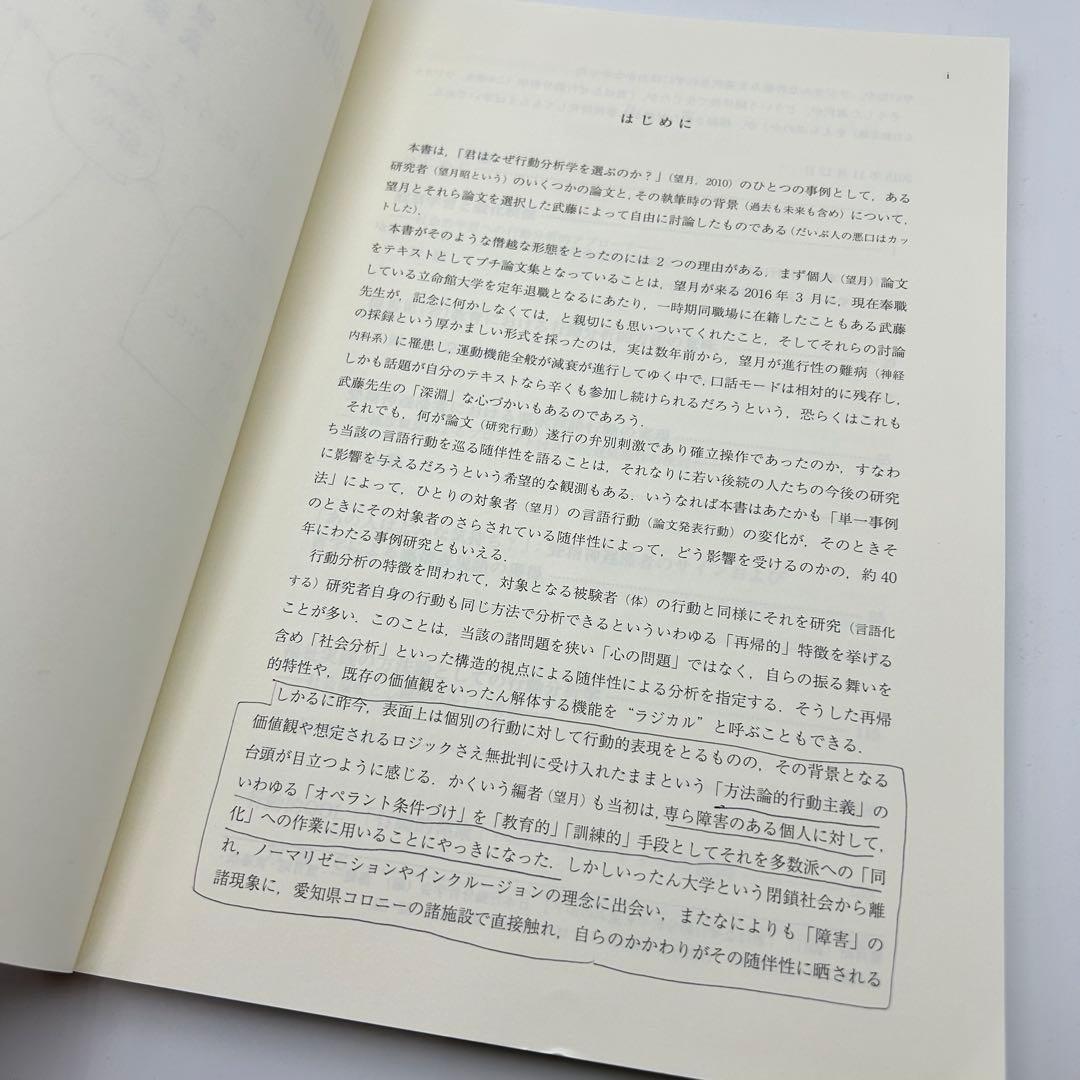 i
はじめに
本書は，「君はなぜ行動分析学を選ぶのか？」（望月，2010）のひとつの事例として，ある
研究者（望月昭という）のいくつかの論文と，その執筆時の背景（過去も未来も含め）について，
望月とそれら論文を選択した武藤によって自由に討論したものである（だいぶ人の悪口はカッ
トした）．
本書がそのような僭越な形態をとったのには 2 つの理由がある．まず個人（望月）論文
をテキストとしてプチ論文集となっていることは，望月が来る 2016 年 3 月に，現在奉職
している立命館大学を定年退職となるにあたり，一時期同職場に在籍したこともある武藤
先生が，記念に何かしなくては，と親切にも思いついてくれたこと，そしてそれらの討論
の採録という厚かましい形式を採ったのは，実は数年前から，望月が進行性の難病（神経
内科系）に罹患し，運動機能全般が減衰が進行してゆく中で，口話モードは相対的に残存し，
しかも話題が自分のテキストなら辛くも参加し続けられるだろうという，恐らくはこれも
武藤先生の「深淵」な心づかいもあるのであろう．
それでも，何が論文（研究行動）遂行の弁別刺激であり確立操作であったのか，すなわ
ち当該の言語行動を巡る随伴性を語ることは，それなりに若い後続の人たちの今後の研究
に影響を与えるだろうという希望的な観測もある．いうなれば本書はあたかも「単一事例
法」によって，ひとりの対象者（望月）の言語行動（論文発表行動）の変化が，そのときそ
のときにその対象者のさらされている随伴性によって，どう影響を受けるのかの，約 40
年にわたる事例研究ともいえる．
行動分析の特徴を問われて，対象となる被験者（体）の行動と同様にそれを研究（言語化
する）研究者自身の行動も同じ方法で分析できるといういわゆる「再帰的」特徴を挙げる
ことが多い．このことは，当該の諸問題を狭い「心の問題」ではなく，自らの振る舞いを
含め「社会分析」といった構造的視点による随伴性による分析を指定する．そうした再帰
的特性や，既存の価値観をいったん解体する機能を“ラジカル”と呼ぶこともできる．
しかるに昨今，表面上は個別の行動に対して行動的表現をとるものの，その背景となる
価値観や想定されるロジックさえ無批判に受け入れたままという「方法論的行動主義」の
台頭が目立つように感じる．かくいう編者（望月）も当初は，専ら障害のある個人に対して，
いわゆる「オペラント条件づけ」を「教育的」「訓練的」手段としてそれを多数派への「同
化」への作業に用いることにやっきになった．しかしいったん大学という閉鎖社会から離
れ，ノーマリゼーションやインクルージョンの理念に出会い，またなによりも「障害」の
諸現象に，愛知県コロニーの諸施設で直接触れ，自らのかかわりがその随伴性に晒される